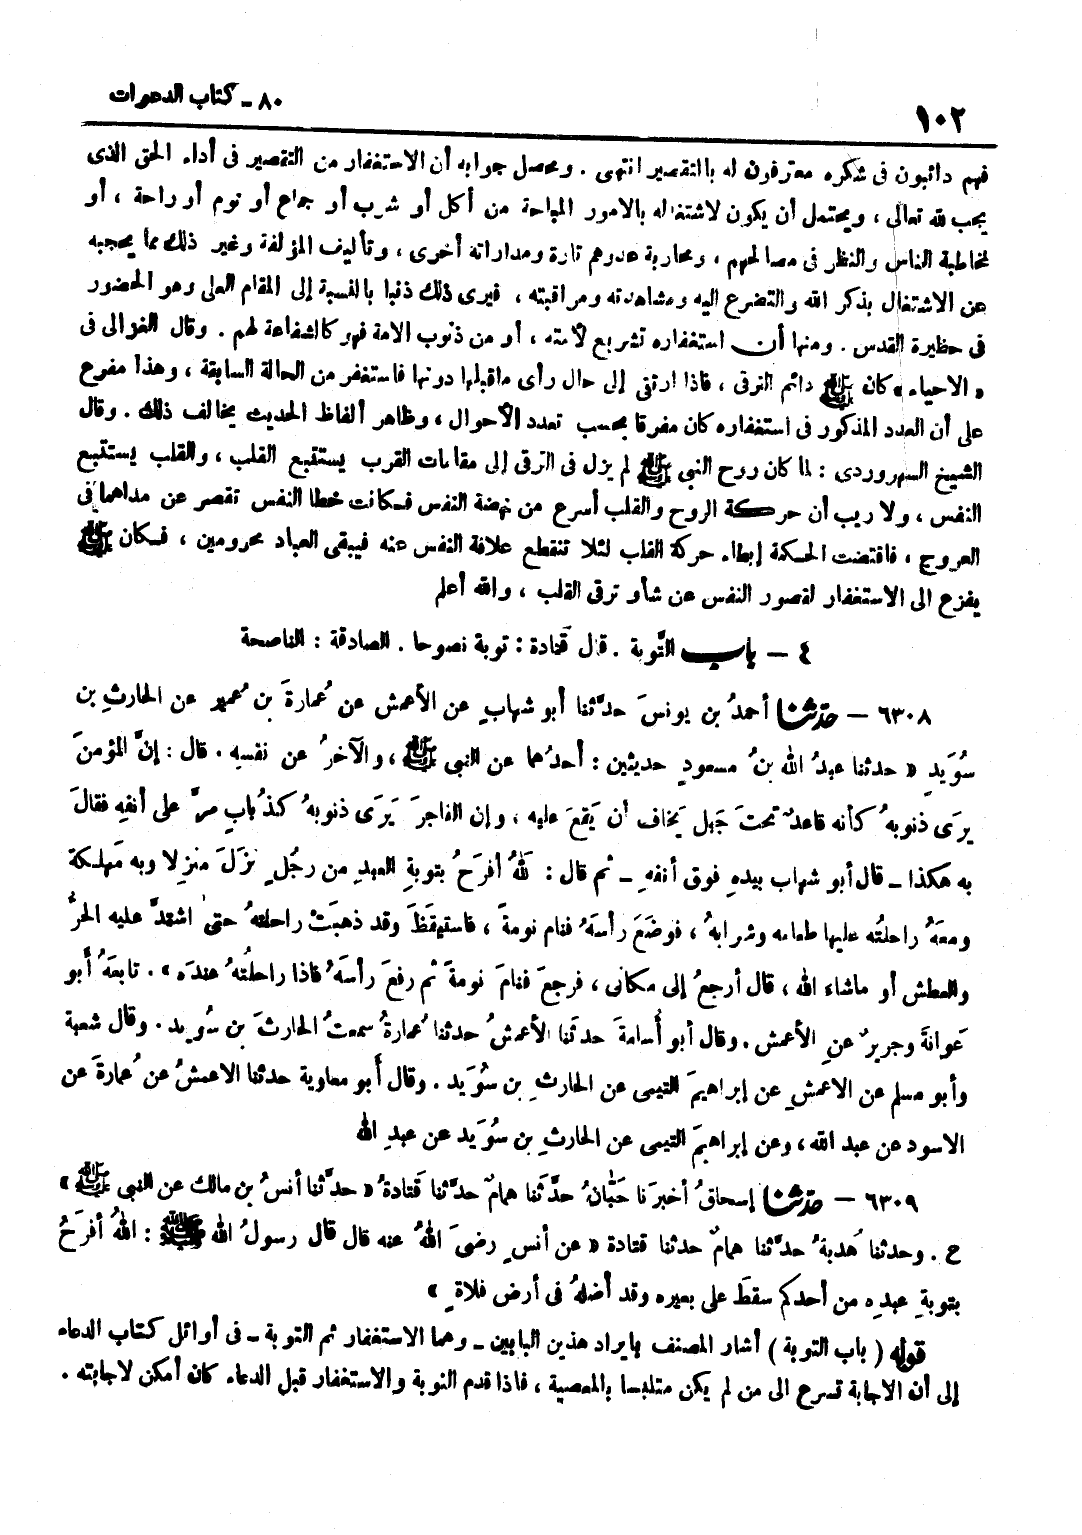 ١٠٢
٨٠ - كتاب الدعوات
فهم دائبون فى شكره معترفون له بالتقصير انتهى . ومحصل جوابه أن الاستغفار من التقصير فى أداء الحق الذى
يجب لله تعالى ، ويحتمل أن يكون لاشتغاله بالامور المباحة من أكل أو شرب أو جماع أو نوم أو راحة ، أو
لمخاطبة الناس والنظر فى مصالحهم ، ومحاربة عدوهم تارة ومداراته أخرى ، وتأليف المؤلفة وغير ذلك مما يحجبه
عن الاشتغال بذكر الله والتضرع اليه ومشاهدته ومراقبته ، فيرى ذلك ذنبا بالنسبة إلى المقام العلى وهو الحضور
فى حظيرة القدس . ومنها أن استغفاره تشريع لأمته ، أو من ذنوب الامة فهو كالشفاعة لهم . وقال الغزالى فى
« الاحياء » كان ﷺ دائم الترقى ، فاذا ارتقى إلى حال رأى ماقبلها دونها فاستغفر من الحالة السابقة ، وهذا مفرع
على أن العدد المذكور فى استغفاره كان مفرقا بحسب تعدد الأحوال ، وظاهر ألفاظ الحديث يخالف ذلك . وقال
الشيخ السهروردى : لما كان روح النبى ﷺ لم يزل فى الترقى إلى مقامات القرب يستتبع القلب ، والقلب يستتبع
النفس ، ولا ريب أن حركة الروح والقلب أسرع من نهضة النفس فكانت خطا النفس تقصر عن مداهما فى
العروج ، فاقتضت الحكمة إبطاء حركة القلب لئلا تنقطع علاقة النفس عنه فيبقى العباد محرومين ، فكان ﷺ
يفزع الى الاستغفار لقصور النفس عن شأو ترقى القلب ، والله أعلم
٤ - باب التَّوبة . قال قَتادة : توبة نصوحا . الصادقة : الناصحة
٦٣٠٨ - حدثنا أحمدُ بن يونسَ حدَّثنا أبو شهابٍ عن الأعمش عن عُمارةَ بن عُمير عن الحارثِ بن
سُوَيدٍ « حدثنا عبدُ الله بنُ مسعودٍ حديثين : أحدُهما عن النبى ﷺ ، والآخرُ عن نفسِه . قال : إنَّ المؤمنَ
يرَى ذنوبهُ كأنه قاعدٌ تحتَ جَبل يَخاف أن يَقعَ عليه ، وإن الفاجرَ يَرَى ذنوبهُ كذُبابٍ مرَّ على أنفهِ فقالَ
به هكذا - قال أبو شهاب بيدهِ فوق أنفهِ - ثم قال : للهُ أفرَحُ بتوبةِ العبدِ من رجُلٍ نزَلَ منزِلا وبه مَهلكة
ومعَهُ راحلتُه عليها طعامه وشرابهُ ، فوضَعَ رأسَهُ فنام نومةً ، فاستيقَظَ وقد ذهبَتْ راحلتهُ حتى اشتدَّ عليه الحرُّ
والعطش أو ماشاء الله ، قال أرجعُ إلى مكانى ، فرجعَ فنامَ نومةً ثم رفعَ رأسَهُ فاذا راحلتُهُ عندَه » . تابعَهُ أبو
عَوانةَ وجريرٌ عنِ الأعمش . وقال أبو أُسامةَ حدثَنا الأعمشُ حدثنا عُمارةُ سمعتُ الحارثَ بن سُوَيد . وقال شعبة
وأبو مسلم عن الاعمشِ عن إبراهيمَ التيمى عن الحارثِ بن سُوَيد . وقال أبو معاوية حدثنا الاعمشُ عن عُمارةَ عن
الاسود عن عبد الله ، وعن إبراهيمَ التيمى عن الحارثِ بن سُوَيد عن عبدِ الله
٦٣٠٩ - حدثنا إسحاقُ أخبرَنا حَبّانُ حدَّثَنا همامٌ حدَّثَنا قَتادةُ « حدَّثنا أنسُ بن مالك عن النبى ﷺ »
ح . وحدثنا هُدبةُ حدَّثنا همامٌ حدثنا قتادة « عن أنسٍ رضىَ اللهُ عنه قال قال رسولُ الله ﷺ : اللهُ أفرَحُ
بتوبةِ عبدِه من أحدكم سقطَ على بعيره وقد أضلهُ فى أرض فلاةٍ »
قوله ( باب التوبة ) أشار المصنف بايراد هذين البابين - وهما الاستغفار ثم التوبة - فى أوائل كتاب الدعاء
إلى أن الاجابة تسرع الى من لم يكن متلبسا بالمعصية ، فاذا قدم التوبة والاستغفار قبل الدعاء كان أمكن لاجابته .